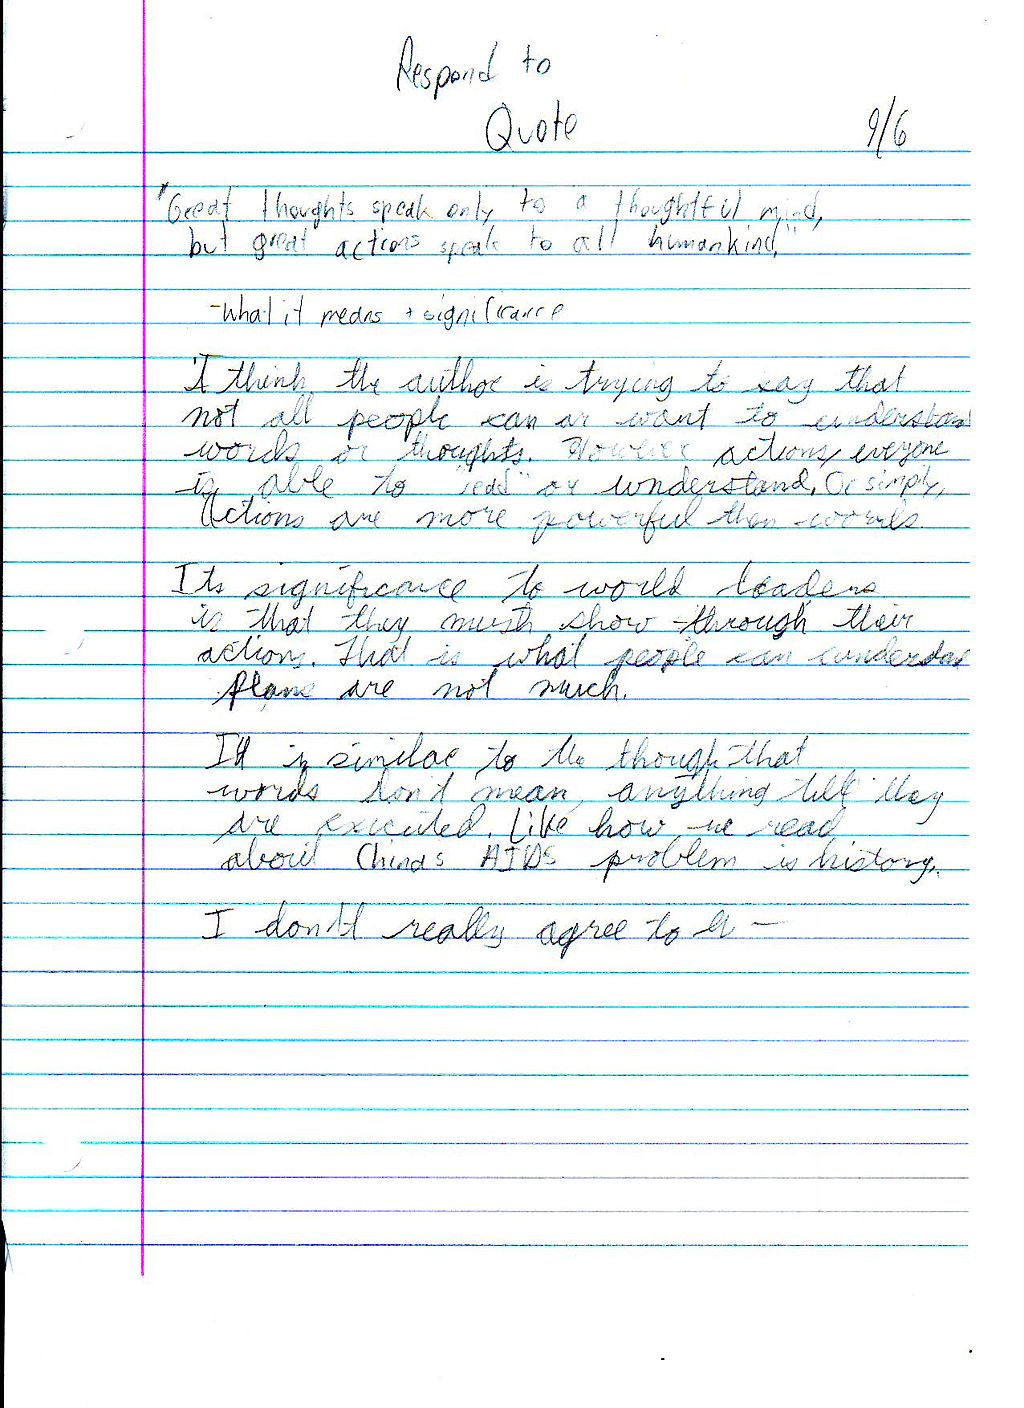 Respond to
Quote
9/6
"Great thoughts speak only to a thoughtful mind,
but great actions speak to all humankind."
-What it means + significance
I think the author is trying to say that
not all people can or want to understand
words or thoughts. However actions, everyone
is able to "read" or understand. Or simply,
Actions are more powerful then words.
Its significance to world leaders
is that they must show through their
actions. That is what people can understand
plans are not much.
It is similar to the though that
words don't mean anything till they
are executed. Like how we read
about China's AIDS problem is history.
I don't really agree to it —